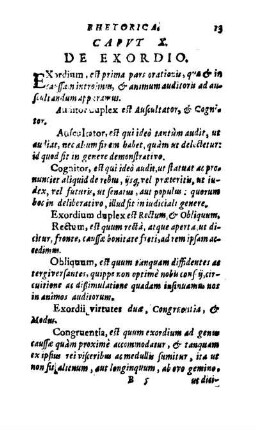 RHETORICA. 13
CAPUT X.
DE EXORDIO.
EXordium, est prima pars orationis, qua & in
caussam introimus, & animum auditoris ad au-
scultandum apparamus.
Auditor duplex est Auscultator, & Cogni-
tor.
Auscultator, est qui ideò tantùm audit, ut
audiat, nec alium finem habet, quàm ut delectetur:
id quod fit in genere demonstrativo.
Cognitor, est qui ideò audit, ut statuat ac pro-
nunciet aliquid de rebus, iisq; vel præteritis, ut iu-
dex, vel futuris, ut senatus, aut populus: quorum
hoc in deliberativo, illud fit in iudiciali genere.
Exordium duplex est Rectum, & Obliquum.
Rectum, est quum rectà, atque apertà, ut di-
citur, fronte, caussæ bonitate freti, ad rem ipsam ac-
cedimus.
Obliquum, est quum tanquam diffidentes ac
tergiversantes, quippe non optimè nobis conscij, cir-
cuitione ac dissimulatione quadam insinuamus nos
in animos auditorum.
Exordii virtutes duæ, Congruentia, &
Modus.
Congruentia, est quum exordium ad genus
caussæ quàm proximè accommodatur, & tanquam
ex ipsius rei visceribus ac medullis sumitur, ita ut
non sit alienum, aut longinquum, ab ovo gemino,
B 5 ut dici-